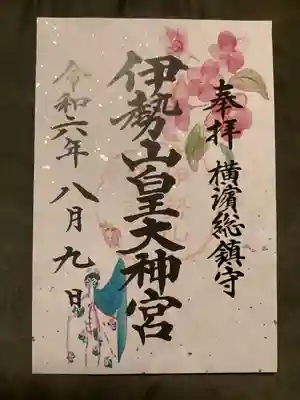 奉拝 横濱総鎮守
伊勢山皇大神宮
令和六年 八月 九日